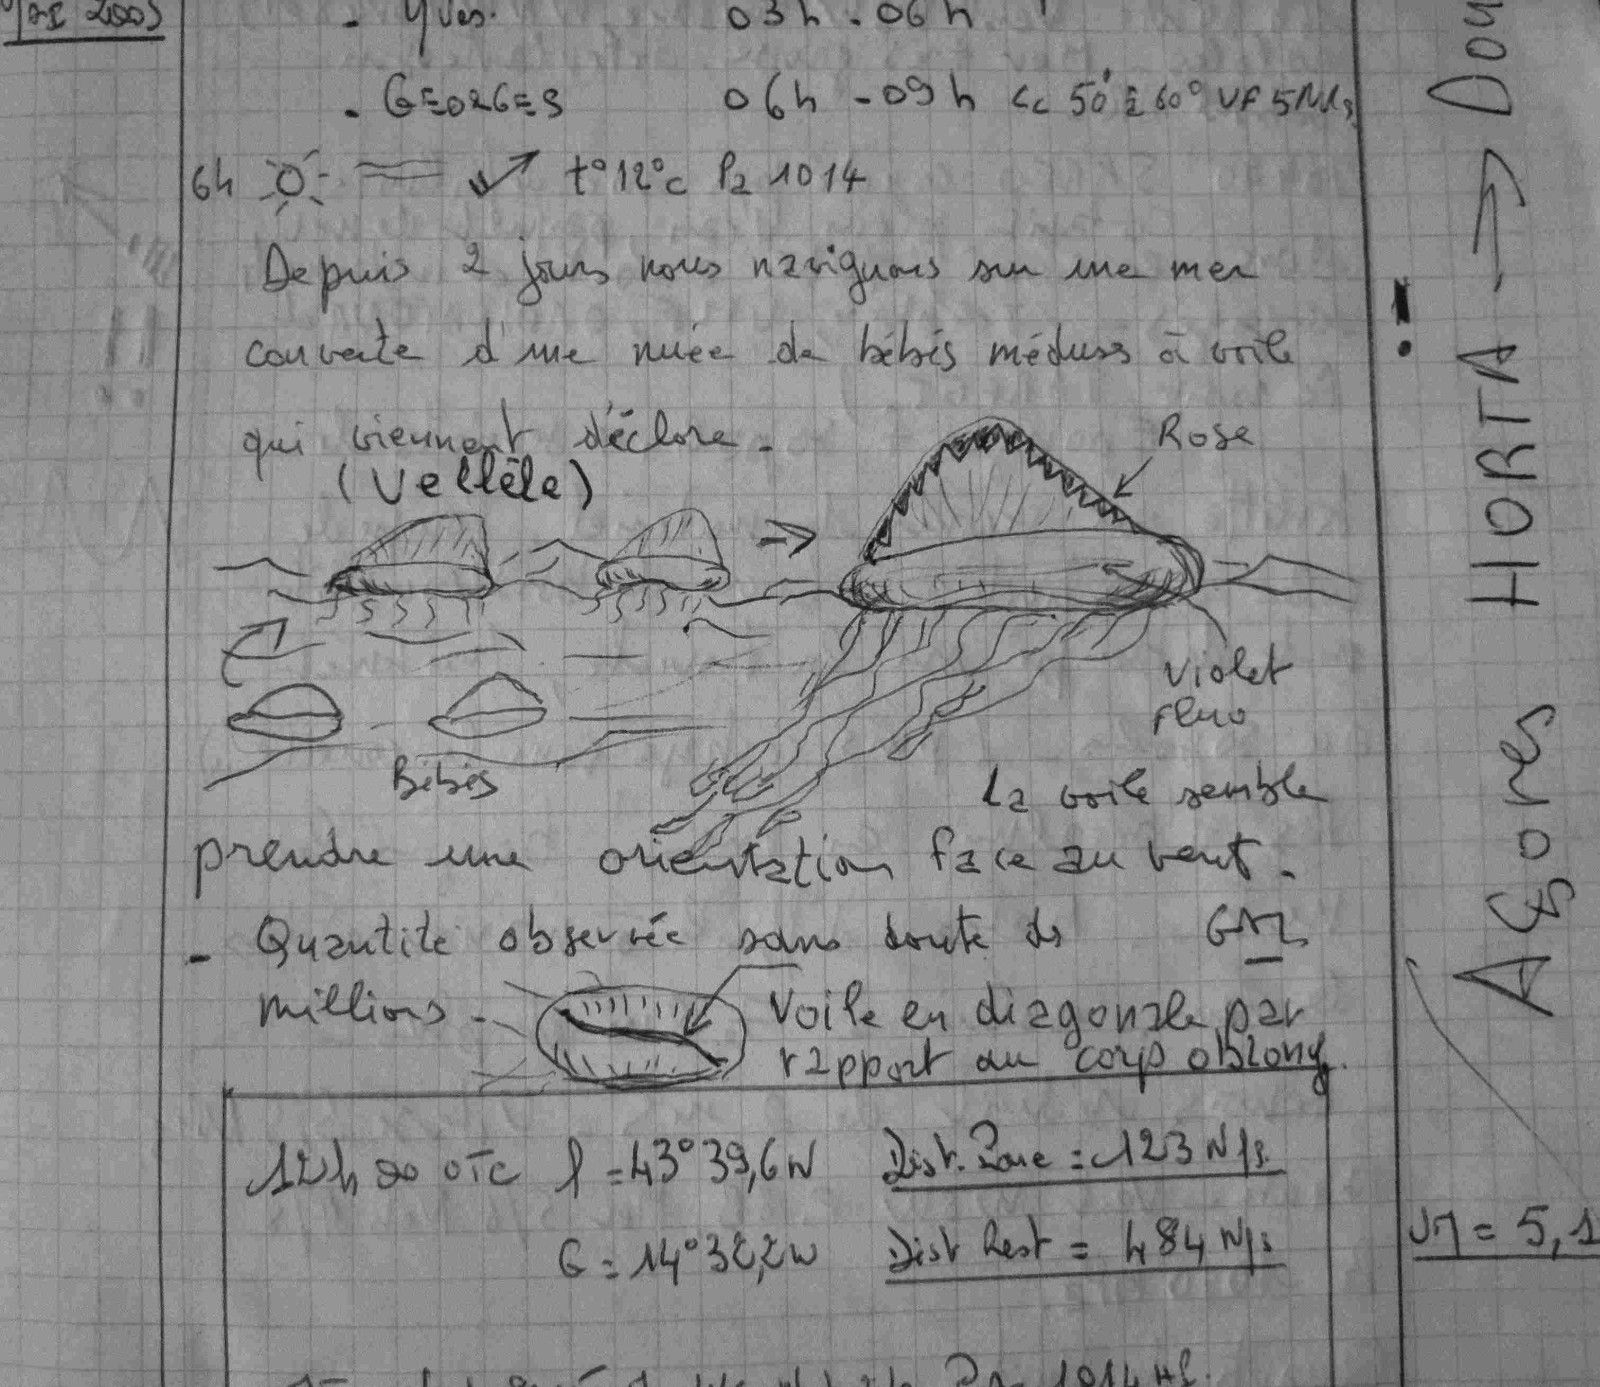 2005
- Yves. 03h - 06h
- GEORGES 06h - 09h Cc 50 à 60° VF 5 Nds
6h t° 12°c Pa 1014
Depuis 2 jours nous naviguons sur une mer
couverte d'une nuée de bébés méduses à voile
qui viennent d'éclore -
(Vellèle)
Rose
Violet
Fluo
Bébés
La voile semble
prendre une orientation face au vent.
- Quantité observée sans doute des
millions.
Voile en diagonale par
rapport au corps oblong.
12h 00 UTC l = 43°39,6 N Dist. Parc = 123 N/s
G = 14°32,2 W Dist Rest = 484 N/s
Pa 1014 HP.
!
HORTA → Dou
AÇores
VM = 5,1